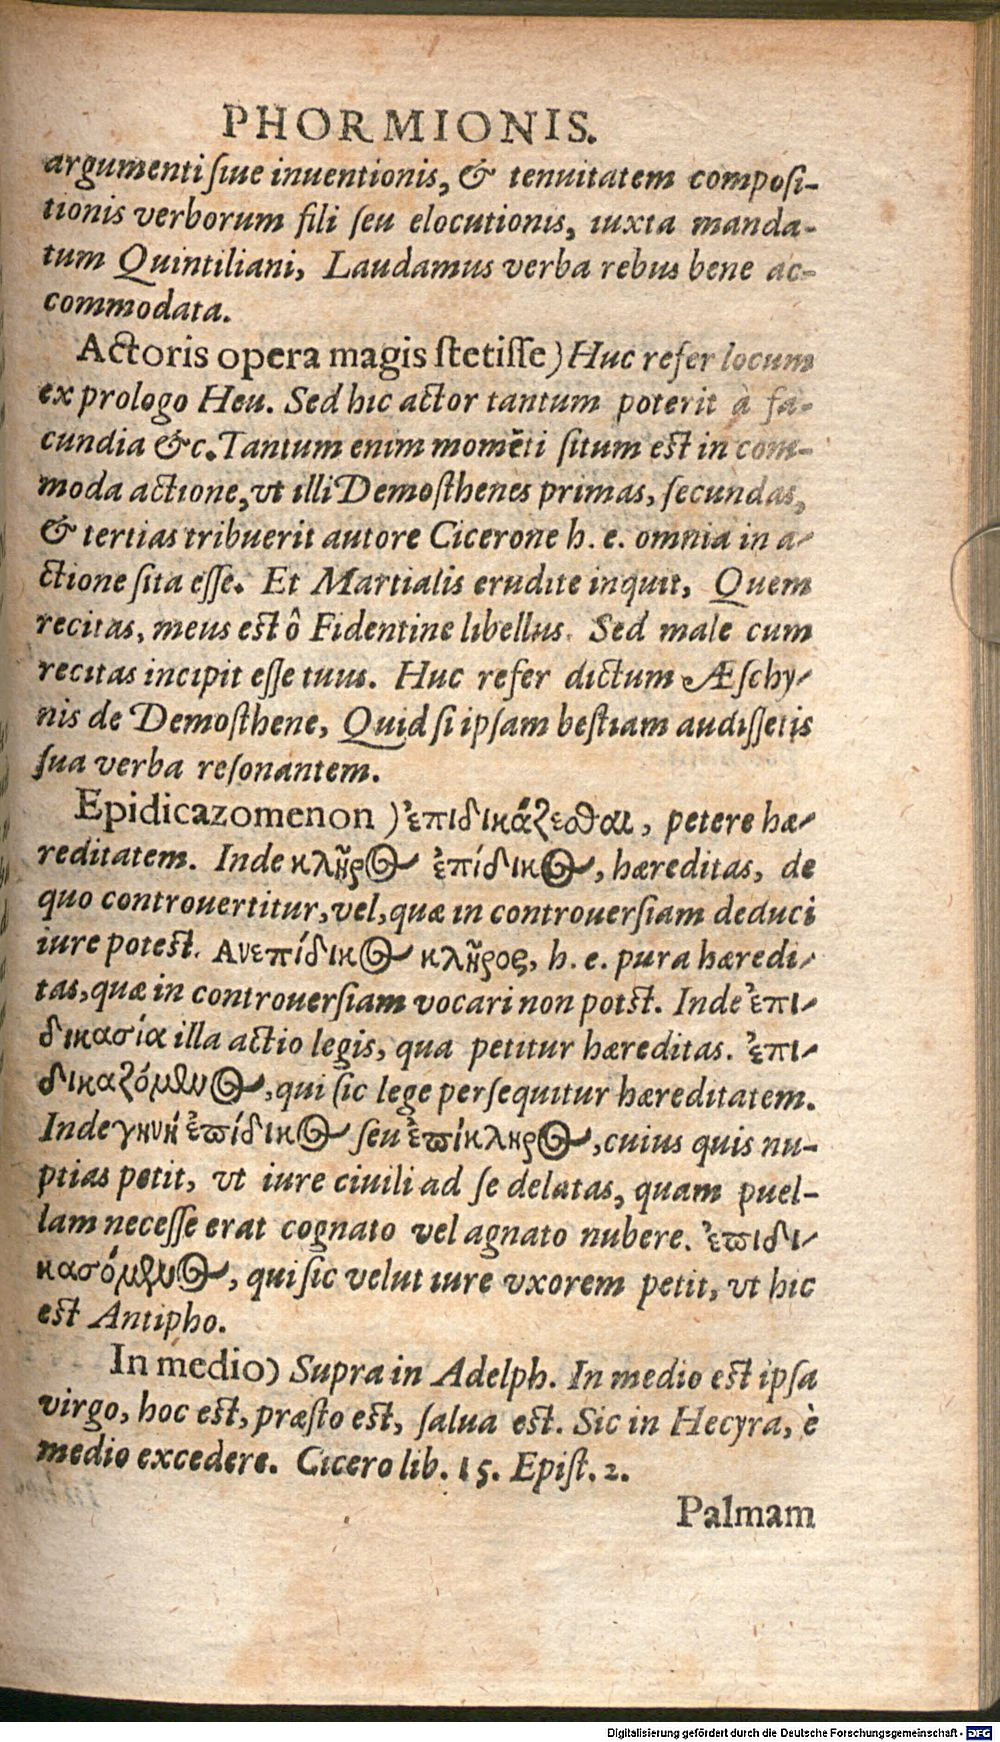 PHORMIONIS.
argumenti ſiue inuentionis, & tenuitatem compoſi-
tionis verborum fili ſeu elocutionis, iuxta manda-
tum Quintiliani, Laudamus verba rebus bene ac-
commodata.
Actoris opera magis ſtetiſſe) Huc refer locum
ex prologo Heu. Sed hic actor tantum poterit à fa-
cundia &c. Tantum enim momẽti ſitum eſt in com-
moda actione, vt illi Demoſthenes primas, ſecundas,
& tertias tribuerit autore Cicerone h. e. omnia in a-
ctione ſita eſſe. Et Martialis erudite inquit, Quem
recitas, meus eſt ô Fidentine libellus. Sed male cum
recitas incipit eſſe tuus. Huc refer dictum Æſchy-
nis de Demoſthene, Quid ſi ipſam beſtiam audiſſetis
ſua verba reſonantem.
Epidicazomenon) ἐπιδικάζεσθαι, petere hæ-
reditatem. Inde κλῆρος ἐπίδικος, hæreditas, de
quo controuertitur, vel, quæ in controuerſiam deduci
iure poteſt. Ανεπίδικος κλῆρος, h. e. pura hæredi-
tas, quæ in controuerſiam vocari non potſt. Inde ἐπι-
δικασία illa actio legis, qua petitur hæreditas. ἐπι-
δικαζόμενος, qui ſic lege perſequitur hæreditatem.
Inde γυνὴ ἐπίδικος ſeu ἐπίκληρος, cuius quis nu-
ptias petit, vt iure ciuili ad ſe delatas, quam puel-
lam neceſſe erat cognato vel agnato nubere. ἐπιδι-
κασόμενος, qui ſic velut iure vxorem petit, vt hic
eſt Antipho.
In medio) Supra in Adelph. In medio eſt ipſa
virgo, hoc eſt, præſto eſt, ſalua eſt. Sic in Hecyra, è
medio excedere. Cicero lib. 15. Epiſt. 2.
Palmam
Digitalisierung gefördert durch die Deutsche Forschungsgemeinschaft - DFG